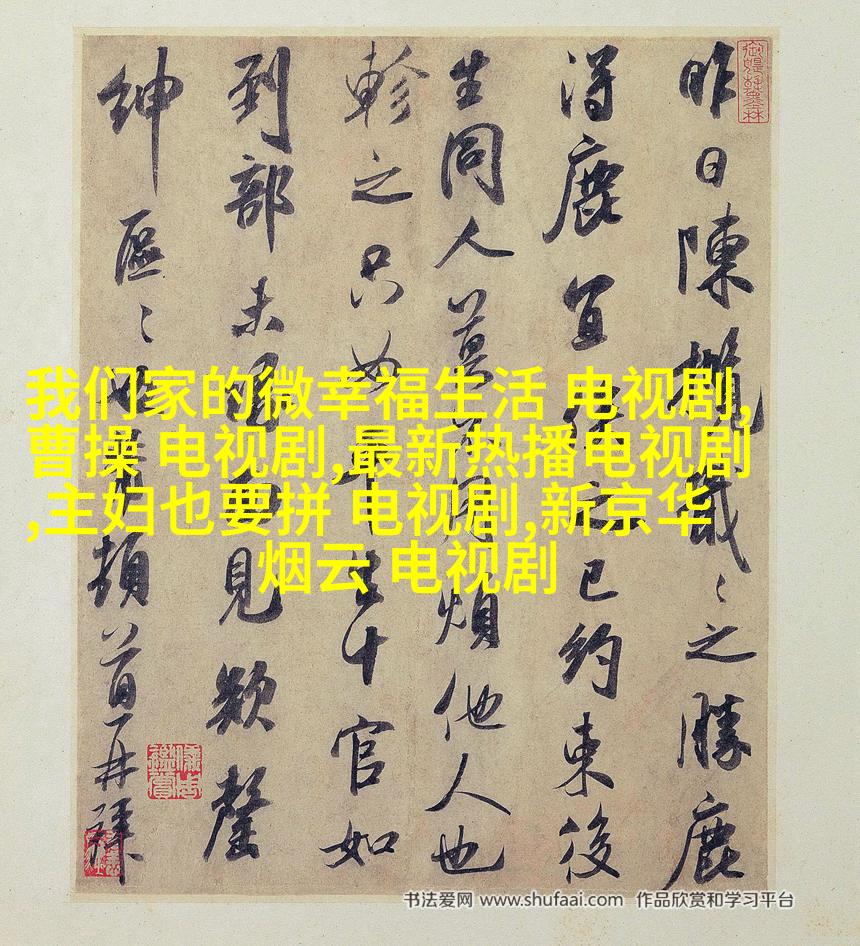 我们家的微幸福生活 电视剧,
曹操 电视剧,最新热播电视剧
,主妇也要拼 电视剧,新京华
烟云 电视剧
昨日陳戢〻之勝鹿
得鹿宜之已約束後
生同人莫煩他人也
軫之只如十官如
到部未面見欵罄
紳區〻頓首再拜
书法爱网 www.shufaai.com 作品欣赏和学习平台